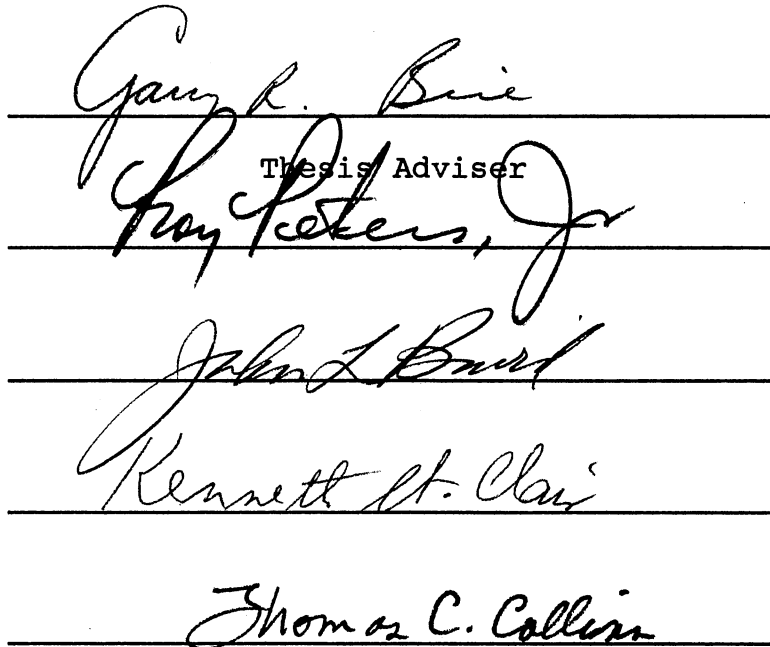 Gary R.
Thesis Adviser
Troy Peters, Jr
John L Baird
Kenneth St. Clair
Thomas C. Collins